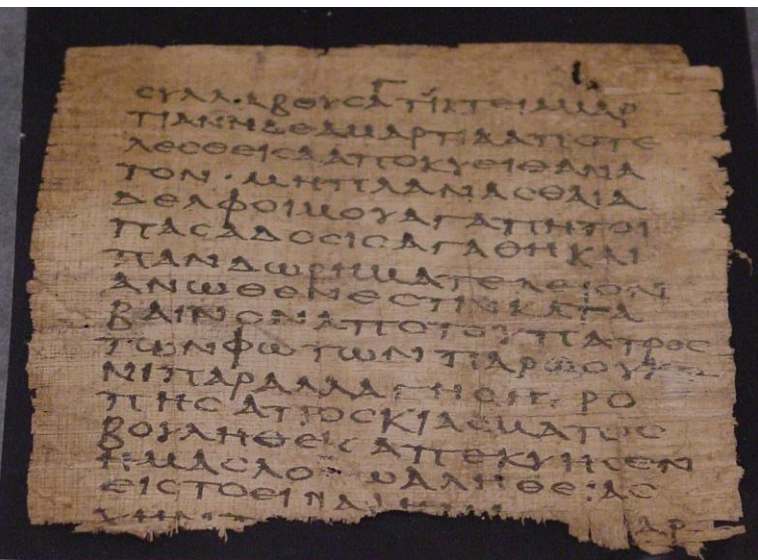 ϹΥΛΛΑΒΟΥϹΑΤΙΚΤΕΙΑΜΑΡ
ΤΙΑΝΗΔΕΑΜΑΡΤΙΑΑΠΟΤΕ
ΛΕϹΘΕΙϹΑΑΠΟΚΥΕΙΘΑΝΑ
ΤΟΝ·ΜΗΠΛΑΝΑϹΘΑΙΑ
ΔΕΛΦΟΙΜΟΥΑΓΑΠΗΤΟΙ
ΠΑϹΑΔΟϹΙϹΑΓΑΘΗΚΑΙ
ΠΑΝΔΩΡΗΜΑΤΕΛΕΙΟΝ
ΑΝΩΘΕΝΕϹΤΙΝΚΑΤΑ
ΒΑΙΝΟΝΑΠΟΤΟΥΠΑΤΡΟϹ
ΤΩΝΦΩΤΩΝΠΑΡΩΟΥΚ
ΝΙΠΑΡΑΛΛΑΓΗϹΗ ΡΟ
ΠΗϹΑΠΟϹΚΙΑϹΜΑΤΟϹ
ΒΟΥΛΗΘΕΙϹΑΠΕΚΥΗϹΕΝ
ΗΜΑϹΛΟ ΩΑΛΗΘΕΙΑϹ
ΕΙϹΤΟΕΙΝΑΙ